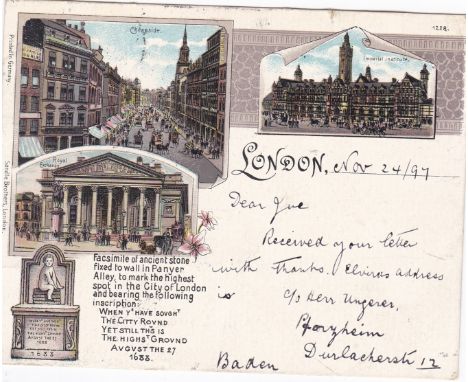 Cheapside.
1228.
Imperial Institute.
Printed in Germany
Sandle Brothers, London.
Royal
Exchange
LONDON, Nov 24/97
Dear Gue
Received your letter
with thanks. Elviras address
is c/o Herr Ungerer,
Pforzheim
Durlacherstr 12
Baden
Facsimile of ancient stone
fixed to wall in Panyer
Alley, to mark the highest
spot in the City of London
and bearing the following
inscription:
WHEN Yᵉ HAVE SOVGHᵀ
THE CITTY ROVND
YET STILL THˢ IS
THE HIGHSᵀ GROVND
AVGVST THE 27
1688.
1688